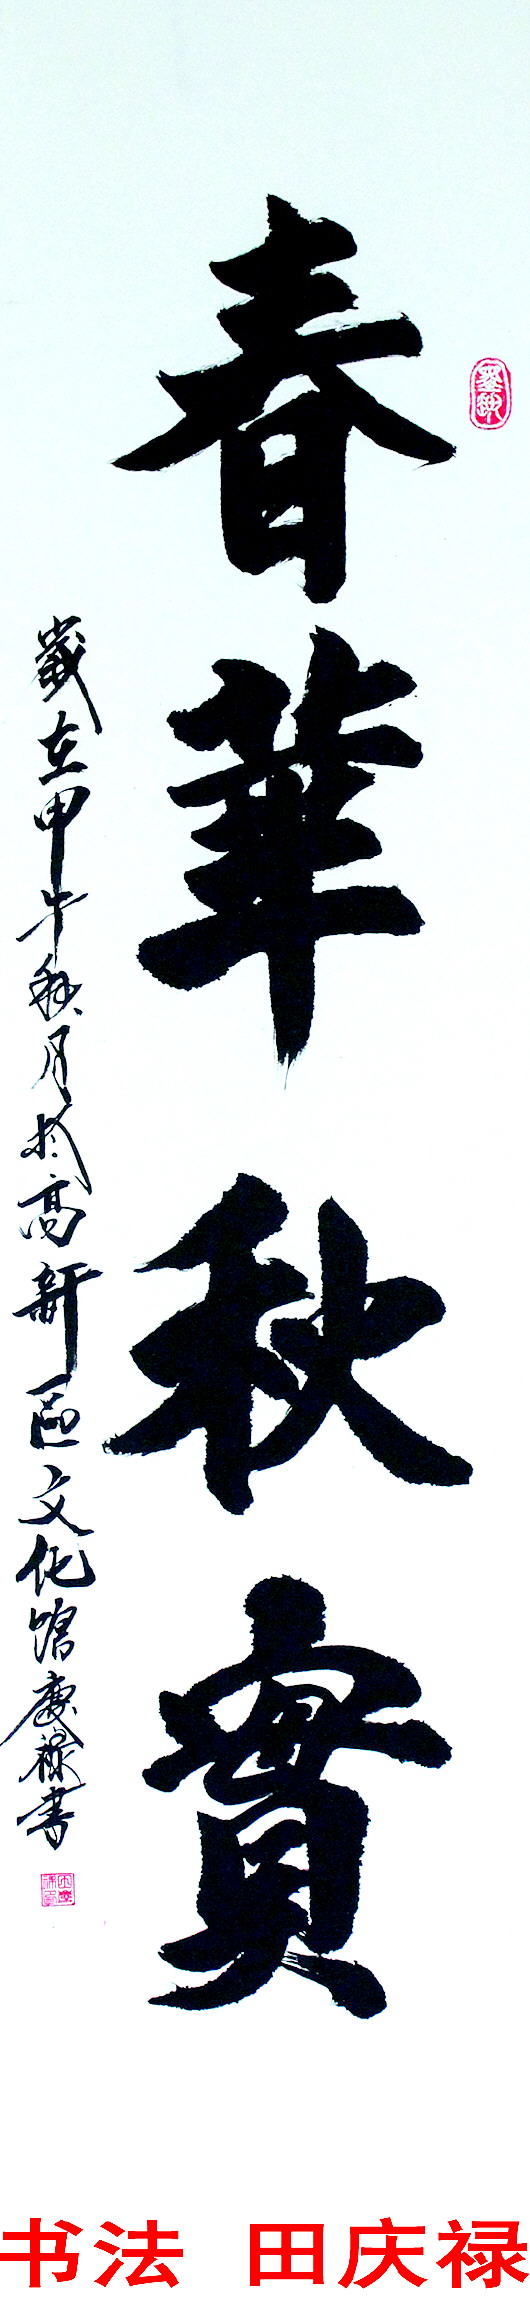 春華秋實
歲在甲午秋月於高新區文化館慶祿書
书法 田庆禄